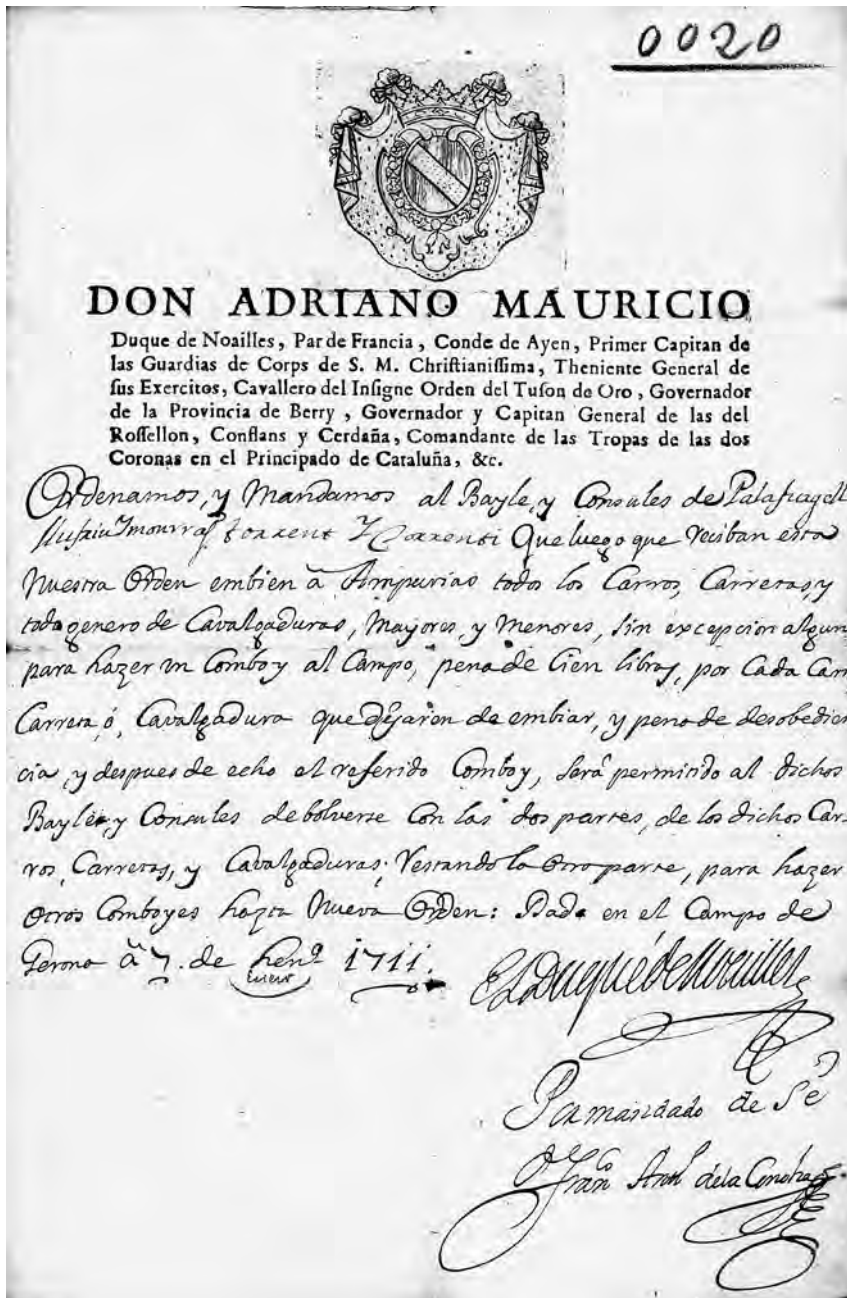 0020
DON ADRIANO MAURICIO
Duque de Noailles, Par de Francia, Conde de Ayen, Primer Capitan de
las Guardias de Corps de S. M. Chriſtianiſſima, Theniente General de
ſus Exercitos, Cavallero del Inſigne Orden del Tuſon de Oro, Governador
de la Provincia de Berry, Governador y Capitan General de las del
Roſſellon, Conflans y Cerdaña, Comandante de las Tropas de las dos
Coronas en el Principado de Cataluña, &c.
Ordenamos, y Mandamos al Bayle, y Consules de Palafrugell
torrent y Que luego que reciban esta
Nuestra Orden embien â Ampurias todos los Carros, Carretas, y
todo genero de Cavalgaduras, Mayores, y Menores, sin excepcion algun
para hazer un Comboy al Campo, pena de Cien libras, por Cada Carr
Carreta, ó, Cavalgadura que dejaren de embiar, y pena de desobedien
cia, y despues de echo el referido Comboy, serâ permitido al dichos
Bayle, y Consules de bolverse Con las dos partes, de los dichos Car-
ros, Carretas, y Cavalgaduras; Restando la otra parte, para hazer
otros Comboyes hazta Nueva Orden: Dada en el Campo de
Gerona â 7. de Hen.º 1711.
enero
El Duque de Noailles
Por mandado de S. E.
Fran.co Ant.º de la Concha